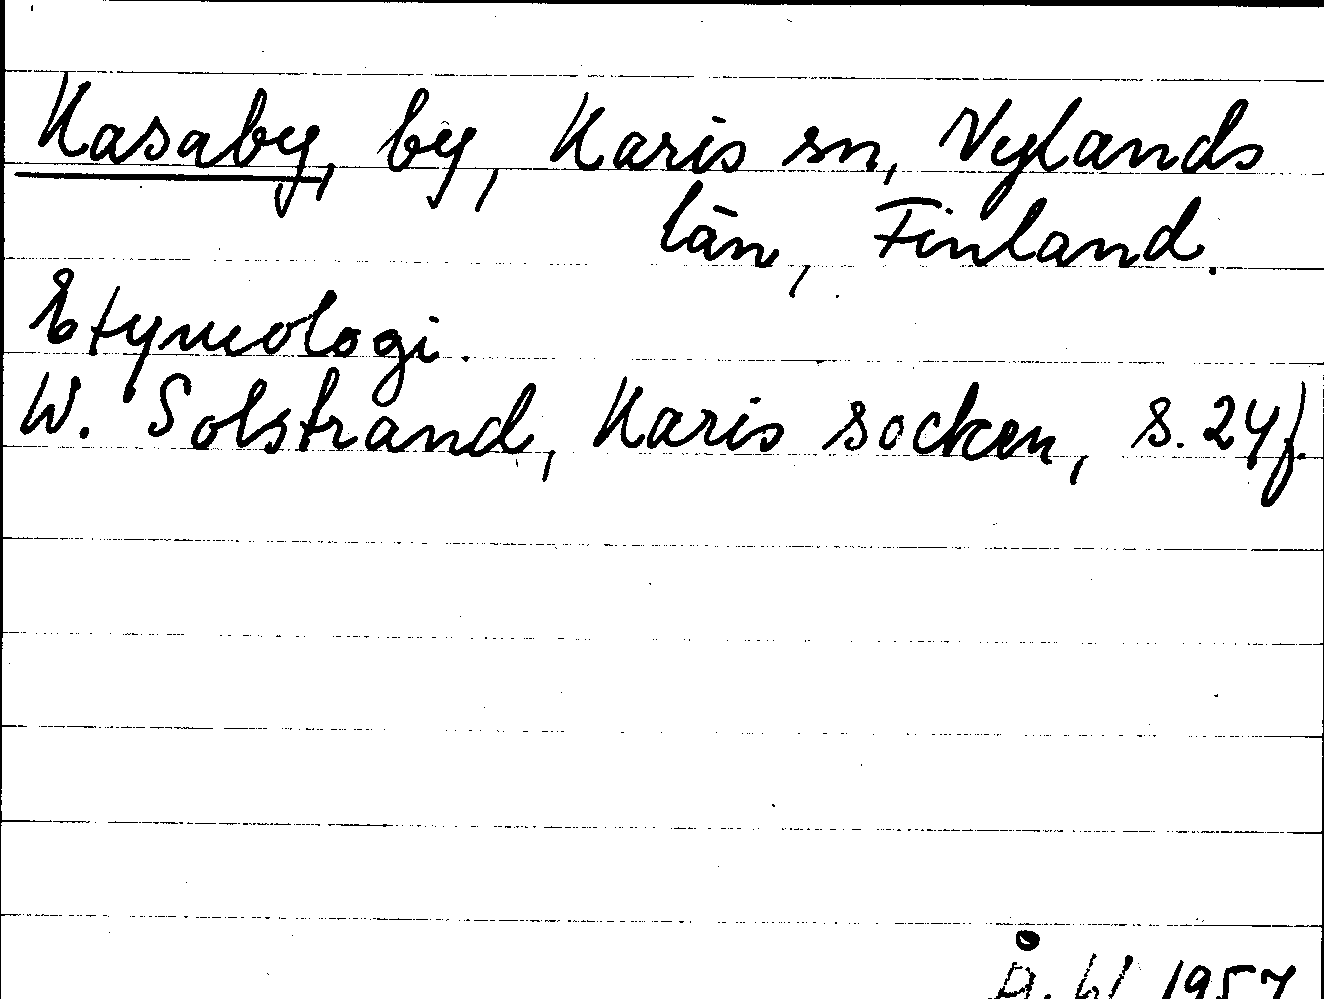 Kasaby, by, Karis sn, Nylands
län, Finland.
Etymologi.
W. Solstrand, Karis socken, s. 24f.
1957